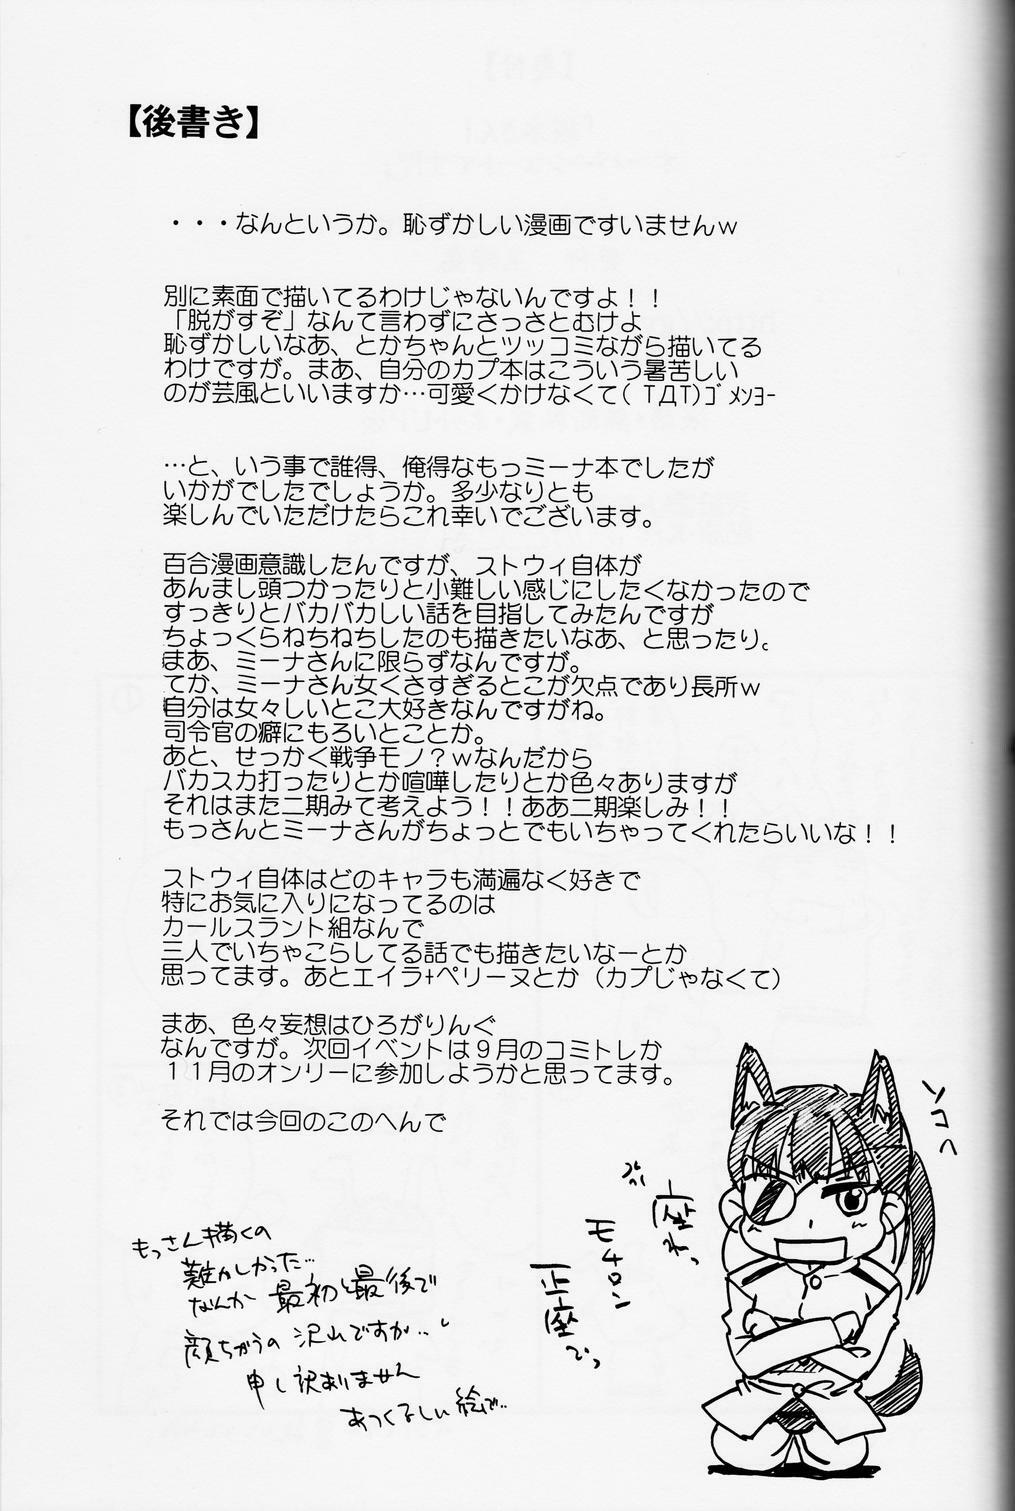 【後書き】
・・・なんというか。恥ずかしい漫画ですいませんｗ
別に素面で描いてるわけじゃないんですよ！！
「脱がすぞ」なんて言わずにさっさとむけよ
恥ずかしいなあ、とかちゃんとツッコミながら描いてる
わけですが。まあ、自分のカプ本はこういう暑苦しい
のが芸風といいますか…可愛くかけなくて(ＴДＴ)ｺﾞﾒﾝﾖｰ
…と、いう事で誰得、俺得なもっミーナ本でしたが
いかがでしたでしょうか。多少なりとも
楽しんでいただけたらこれ幸いでございます。
百合漫画意識したんですが、ストウィ自体が
あんまし頭つかったりと小難しい感じにしたくなかったので
すっきりとバカバカしい話を目指してみたんですが
ちょっくらねちねちしたのも描きたいなあ、と思ったり。
まあ、ミーナさんに限らずなんですが。
てか、ミーナさん女くさすぎるとこが欠点であり長所ｗ
自分は女々しいとこ大好きなんですがね。
司令官の癖にもろいとことか。
あと、せっかく戦争モノ？ｗなんだから
バカスカ打ったりとか喧嘩したりとか色々ありますが
それはまた二期みて考えよう！！ああ二期楽しみ！！
もっさんとミーナさんがちょっとでもいちゃってくれたらいいな！！
ストウィ自体はどのキャラも満遍なく好きで
特にお気に入りになってるのは
カールスラント組なんで
三人でいちゃこらしてる話でも描きたいなーとか
思ってます。あとエイラ+ペリーヌとか（カプじゃなくて）
まあ、色々妄想はひろがりんぐ
なんですが。次回イベントは９月のコミトレか
１１月のオンリーに参加しようかと思ってます。
それでは今回のこのへんで
ソコへ
座れっ
モチロン
正座でっ
もっさん描くの
難かしかった…
なんか最初と最後で
顔ちがうの沢山ですが…
申し訳ありません
あつくるしい絵で…